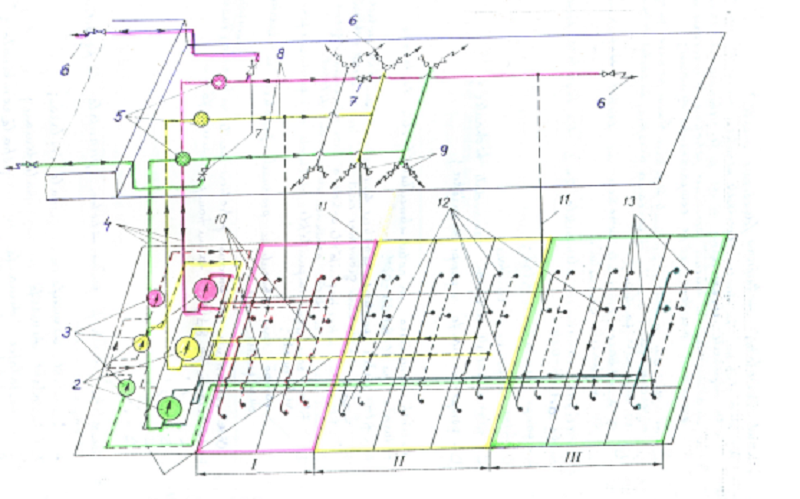 6
8
6
5
7
7
6
9
4
10
11
12
11
13
3
2
I
II
III